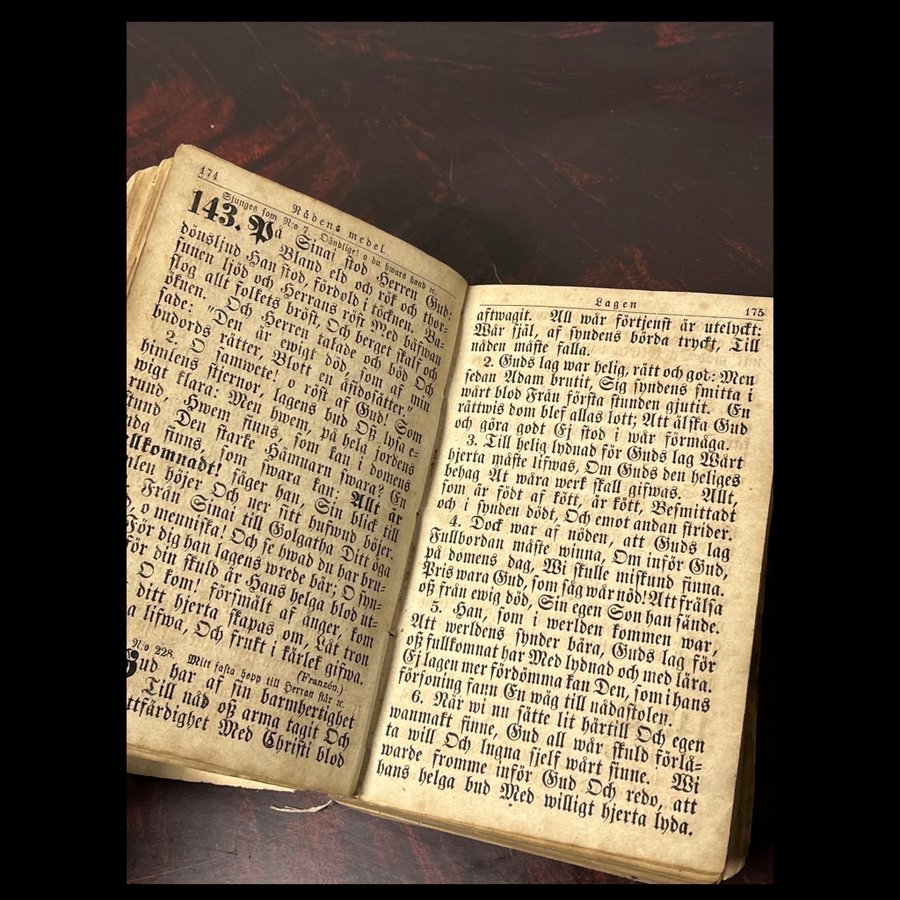 174
Nådens medel.
Sjunges som N:o 7. Oändlige! o du hwars hand ꝛc.
143. På Sinai stod Herren Gud:
Bland eld och rök och thor-
dönsljud Han stod, fördold i töcknen. Ba-
sunen ljöd och Herrans röst Med båfwan
slog allt folkets bröst, Och berget skalf och
öknen. Och Herren talade och böd Och
sade: "Den är ewigt död, som af min
budords rätter, Blott en åsidosätter."
2. O samwete! o röst af Gud! Som
himlens stjernor, lagens bud Oß lysa e-
wigt klara: Men hwem, på hela jordens
rund, Hwem finns, som kan i domens
stund Den starke Hämnarn swara? En
finns, som swara kan: Allt är
fullkomnadt! säger han, Sin blick till
höjer Och ner sitt hufwud böjer.
Från Sinai till Golgatha Ditt öga
o menniska! Och se hwad du har bru-
För dig han lagens wrede bär; O syn-
för din skuld är Hans helga blod ut-
O kom! försmält af ånger, kom
ditt hjerta skapas om, Låt tron
lifwa, Och frukt i kärlek gifwa.
N:o 228. Mitt fasta hopp till Herran står ꝛc.
(Franzén.)
Gud har af sin barmhertighet
Till nåd oß arma tagit Och
rättfärdighet Med Christi blod
Lagen
175
aftwagit. All wår förtjenst är utelyckt:
Wår själ, af syndens börda tryckt, Till
nåden måste falla.
2. Guds lag war helig, rätt och god: Men
sedan Adam brutit, Sig syndens smitta i
wårt blod Från första stunden gjutit. En
rättwis dom blef allas lott; Att älska Gud
och göra godt Ej stod i wår förmåga.
3. Till helig lydnad för Guds lag Wårt
hjerta måste lifwas, Om Guds den heliges
behag At wåra werk skall gifwas. Allt,
som är födt af kött, är kött, Besmittadt
och i synden dödt, Och emot andan strider.
4. Dock war af nöden, att Guds lag
Fullbordan måste winna, Om inför Gud,
på domens dag, Wi skulle miskund finna.
Pris wara Gud, som såg wår nöd! Att frälsa
oß från ewig död, Sin egen Son han sände.
5. Han, som i werlden kommen war,
Att werldens synder bära, Guds lag för
oß fullkomnat har Med lydnad och med lära.
Ej lagen mer fördömma kan Den, som i hans
försoning fann En wäg till nådastolen.
6. När wi nu sätte lit härtill Och egen
wanmakt finne, Gud all wår skuld förlå-
ta will Och lugna sjelf wårt sinne. Wi
warde fromme inför Gud Och redo, att
hans helga bud Med willigt hjerta lyda.